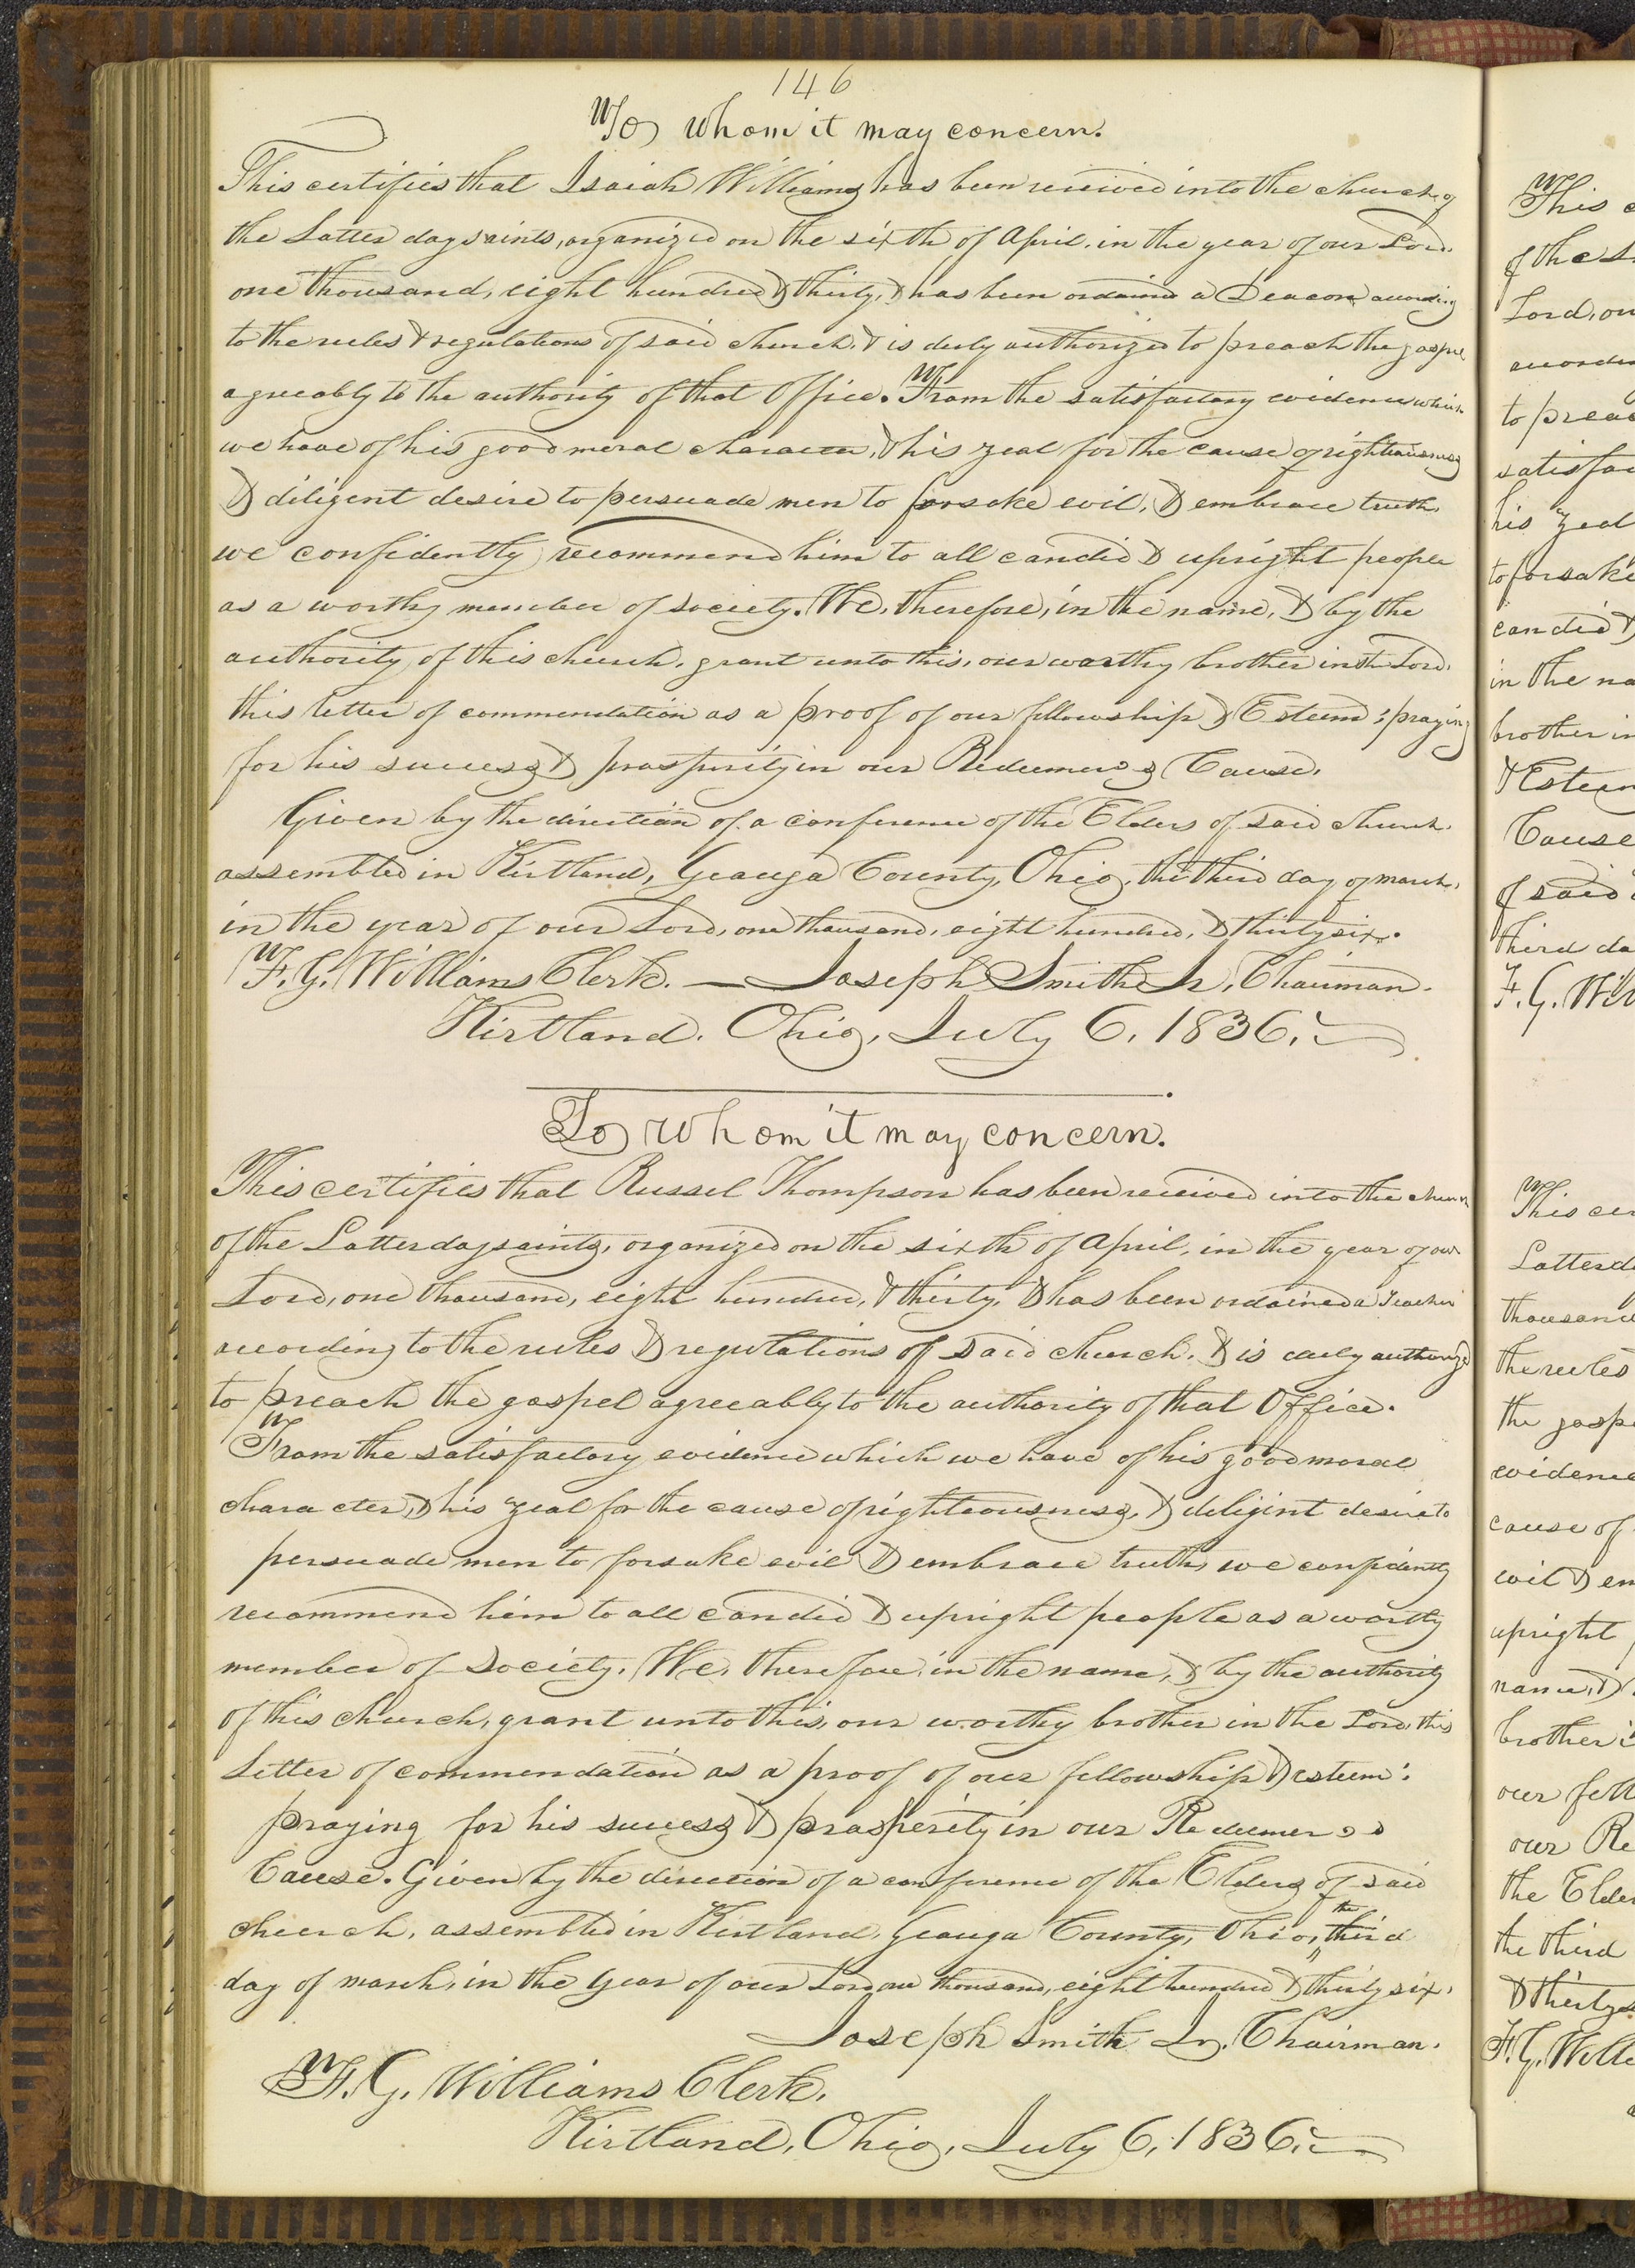 146
To whom it may concern.
This certifies that Isaiah Williams has been received into the church of
the Latter day saints, organized on the sixth of April, in the year of our Lord.
one thousand, eight hundred & thirty, & has been ordained a Deacon according
to the rules & regulations of said church, & is duly authorized to preach the gospel
agreeably to the authority of that Office. From the satisfactory evidence which
we have of his good moral character, & his zeal for the cause of righteousness
& diligent desire to persuade men to forsake evil, & embrace truth,
we confidently recommend him to all candid & upright people
as a worthy member of society. We, therefore, in the name, & by the
authority of this church, grant unto this, our worthy brother in the Lord,
this letter of commendation as a proof of our fellowship & Esteem: praying
for his success & prosperity in our Redeemers Cause.
Given by the direction of a conference of the Elders of said church.
assembled in Kirtland, Geauga County, Ohio, the third day of march,
in the year of our Lord, one thousand, eight hundred, & thirty six.
F. G. Williams Clerk. — Joseph Smith Jr, Chairman.
Kirtland. Ohio, July 6, 1836.
To whom it may concern.
This certifies that Russel Thompson has been received into the church
of the Latter day saints, organized on the sixth of April, in the year of our
Lord, one thousand, eight hundred, & thirty, & has been ordained a Teacher
according to the rules & regulations of said church, & is duly authorized
to preach the gospel agreeably to the authority of that Office.
From the satisfactory evidence which we have of his good moral
character, & his zeal for the cause of righteousness, & diligint desire to
persuade men to forsake evil & embrace truth, we confidently
recommend him to all candid & upright people as a worthy
member of Society. We, therefore, in the name, & by the authority
of this church, grant unto this, our worthy brother in the Lord, this
Letter of commendation as a proof of our fellowship & esteem:
praying for his success & prosperity in our Redeemers
Cause. Given by the direction of a conference of the Elders of said
church, assembled in Kirtland, Geauga County, Ohio, the third
day of march, in the year of our Lord one thousand, eight hundred & thirty six.
Joseph Smith Jr. Chairman.
F. G. Williams Clerk.
Kirtland, Ohio, July 6, 1836.
This
of the
Lord, on
to
satisfac
his zeal
to forsake
candid &
in the na
brother in
& Esteem
Cause
of said
third da
F. G. Wil
This cer
Latter d
thousand
the rules
the gosp
evidence
cause of
evil & em
upright
name, &
brother i
our fell
our Re
the Elder
the third
& thirty
F. G. Willi